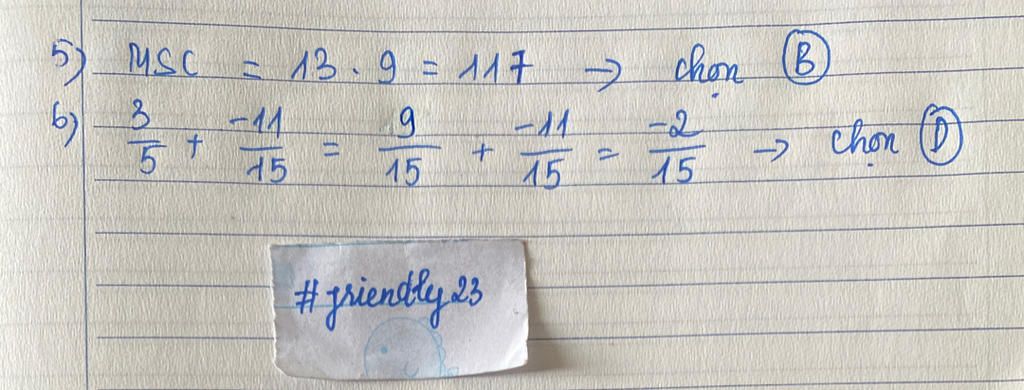 5) MSC = 13 . 9 = 117 → chọn B
6) 3/5 + -11/15 = 9/15 + -11/15 = -2/15 → chọn D
#friendly23